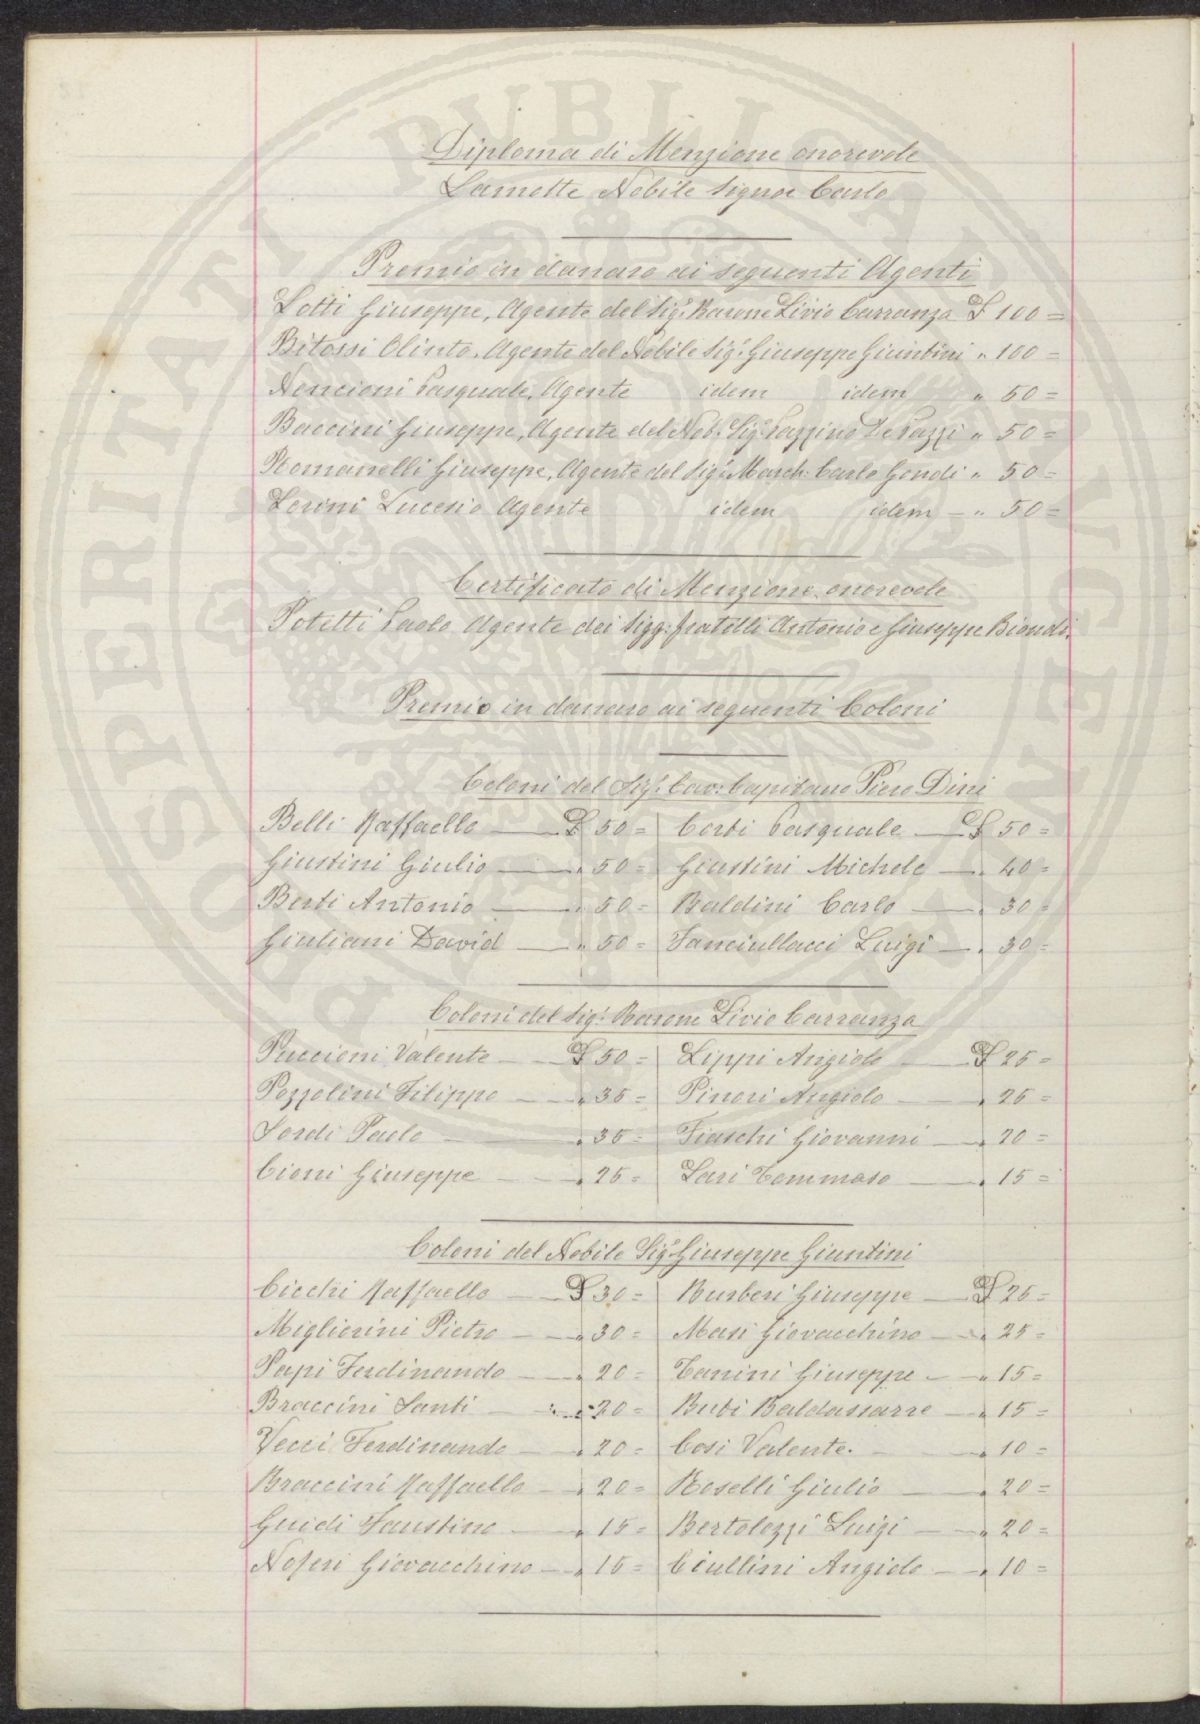 Diploma di Menzione onorevole
Lamotte Nobile Signor Carlo
Premio in danaro ai seguenti Agenti
Lotti Giuseppe, Agente del Sig.r Barone Livio Carranza £ 100 =
Bitossi Olinto, Agente del Nobile Sig.r Giuseppe Giuntini " 100 =
Nencioni Pasquale, Agente idem idem " 50 =
Baccini Giuseppe, Agente del Nob. Sig.r Pazzino De Pazzi " 50 =
Romanelli Giuseppe, Agente del Sig.r March. Carlo Gondi " 50 =
Lorini Lucesio Agente idem idem — " 50 =
Certificato di Menzione onorevole
Potetti Paolo Agente dei Sigg. fratelli Antonio e Giuseppe Biondi.
Premio in danaro ai seguenti Coloni
Coloni del Sig.r Cav. Capitano Piero Dini
Belli Raffaello — £ 50 = Corti Pasquale — £ 50 =
Giustini Giulio — " 50 = Giustini Michele — " 40 =
Berti Antonio — " 50 = Baldini Carlo — " 30 =
Giuliani David — " 50 = Fanciullacci Luigi — " 30 =
Coloni del Sig.r Barone Livio Carranza
Puccioni Valente — £ 50 = Lippi Angiolo — £ 25 =
Pozzolini Filippo — " 35 = Pinori Angiolo — " 25 =
Sordi Paolo — " 35 = Fiaschi Giovanni — " 20 =
Cioni Giuseppe — " 25 = Lari Tommaso — " 15 =
Coloni del Nobile Sig.r Giuseppe Giuntini
Cicchi Raffaello — £ 30 = Burberi Giuseppe — £ 25 =
Migliorini Pietro — " 30 = Masi Giovacchino — " 25 =
Papi Ferdinando — " 20 = Tanini Giuseppe — " 15 =
Braccini Santi — " 20 = Buti Baldassarre — " 15 =
Vecci Ferdinando — " 20 = Cosi Valente. — " 10 =
Braccini Raffaello — " 20 = Roselli Giulio — " 20 =
Guidi Faustino — " 15 = Bertolozzi Luigi — " 20 =
Noferi Giovacchino — " 15 = Ciullini Angiolo — " 10 =
PROSPERITATI PUBLICAE AUGENDAE